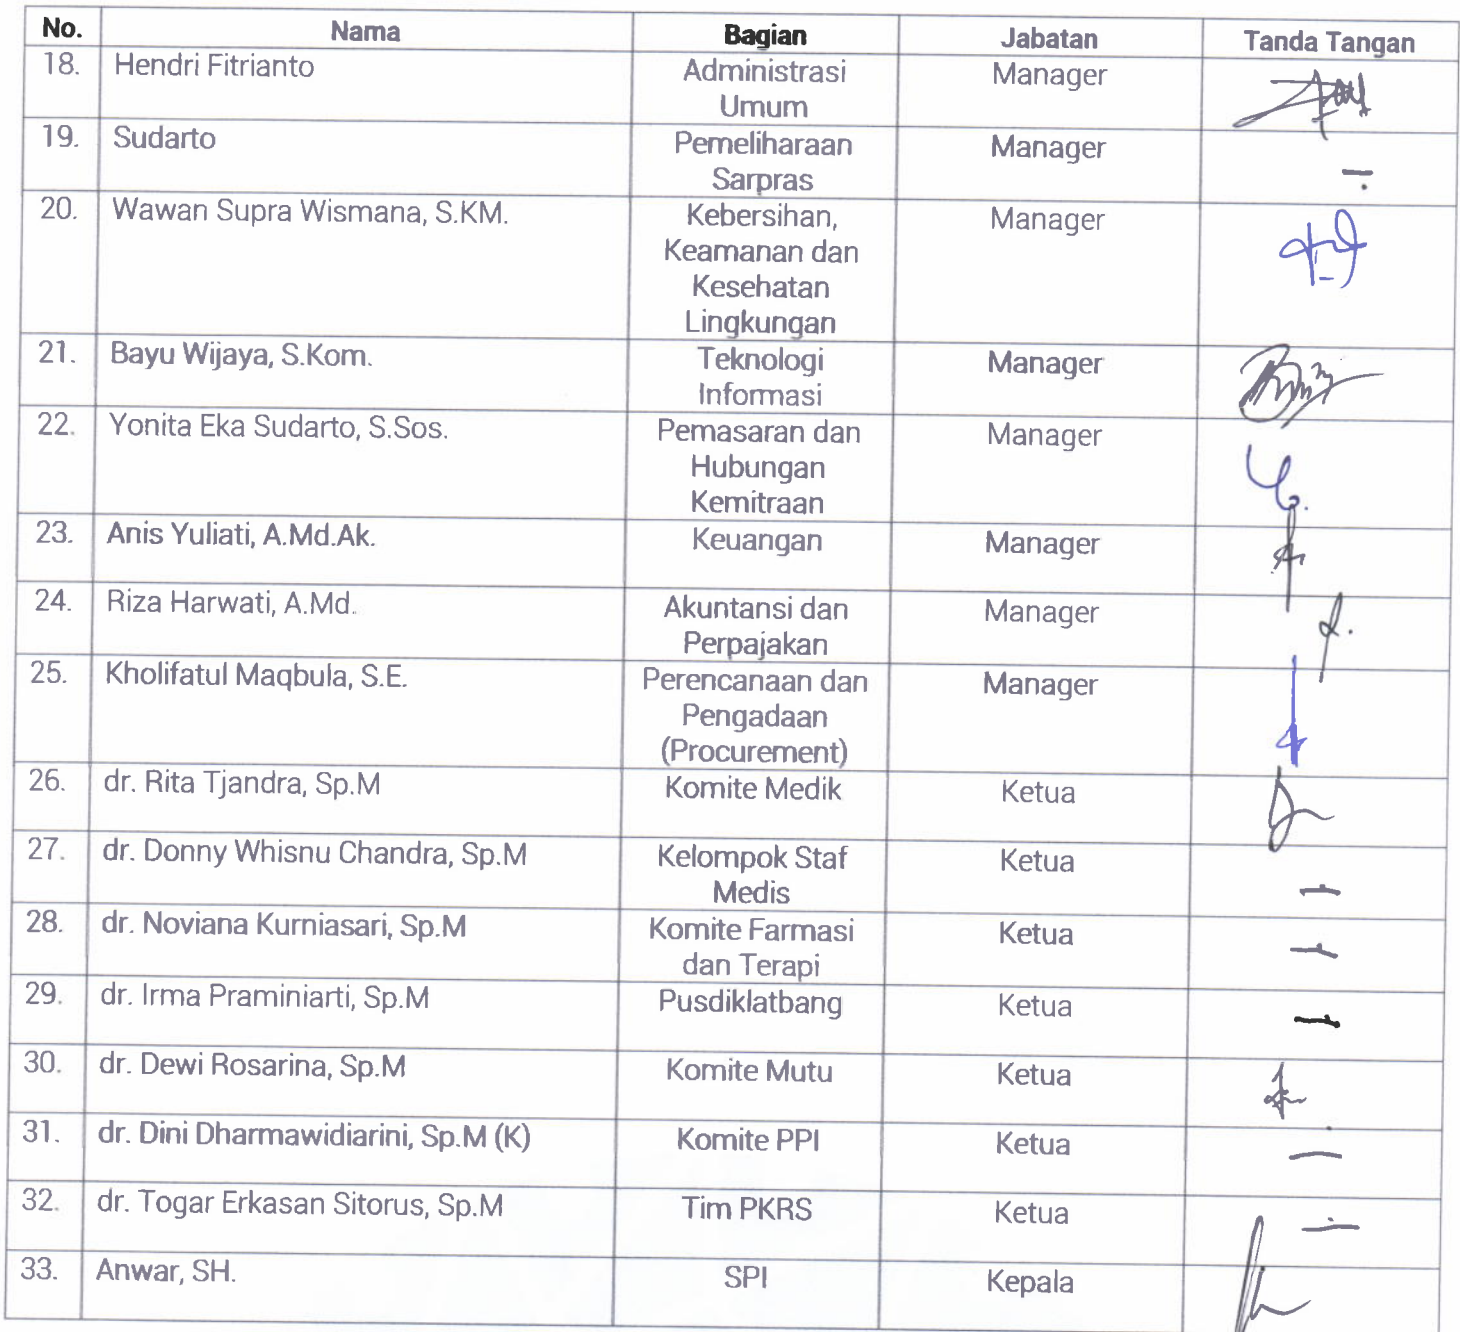 No. Nama Bagian Jabatan Tanda Tangan
18. Hendri Fitrianto Administrasi Manager
Umum
19. Sudarto Pemeliharaan Manager
Sarpras
20. Wawan Supra Wismana, S.KM. Kebersihan, Manager
Keamanan dan
Kesehatan
Lingkungan
21. Bayu Wijaya, S.Kom. Teknologi Manager
Informasi
22. Yonita Eka Sudarto, S.Sos. Pemasaran dan Manager
Hubungan
Kemitraan
23. Anis Yuliati, A.Md.Ak. Keuangan Manager
24. Riza Harwati, A.Md. Akuntansi dan Manager
Perpajakan
25. Kholifatul Maqbula, S.E. Perencanaan dan Manager
Pengadaan
(Procurement)
26. dr. Rita Tjandra, Sp.M Komite Medik Ketua
27. dr. Donny Whisnu Chandra, Sp.M Kelompok Staf Ketua
Medis
28. dr. Noviana Kurniasari, Sp.M Komite Farmasi Ketua
dan Terapi
29. dr. Irma Praminiarti, Sp.M Pusdiklatbang Ketua
30. dr. Dewi Rosarina, Sp.M Komite Mutu Ketua
31. dr. Dini Dharmawidiarini, Sp.M (K) Komite PPI Ketua
32. dr. Togar Erkasan Sitorus, Sp.M Tim PKRS Ketua
33. Anwar, SH. SPI Kepala